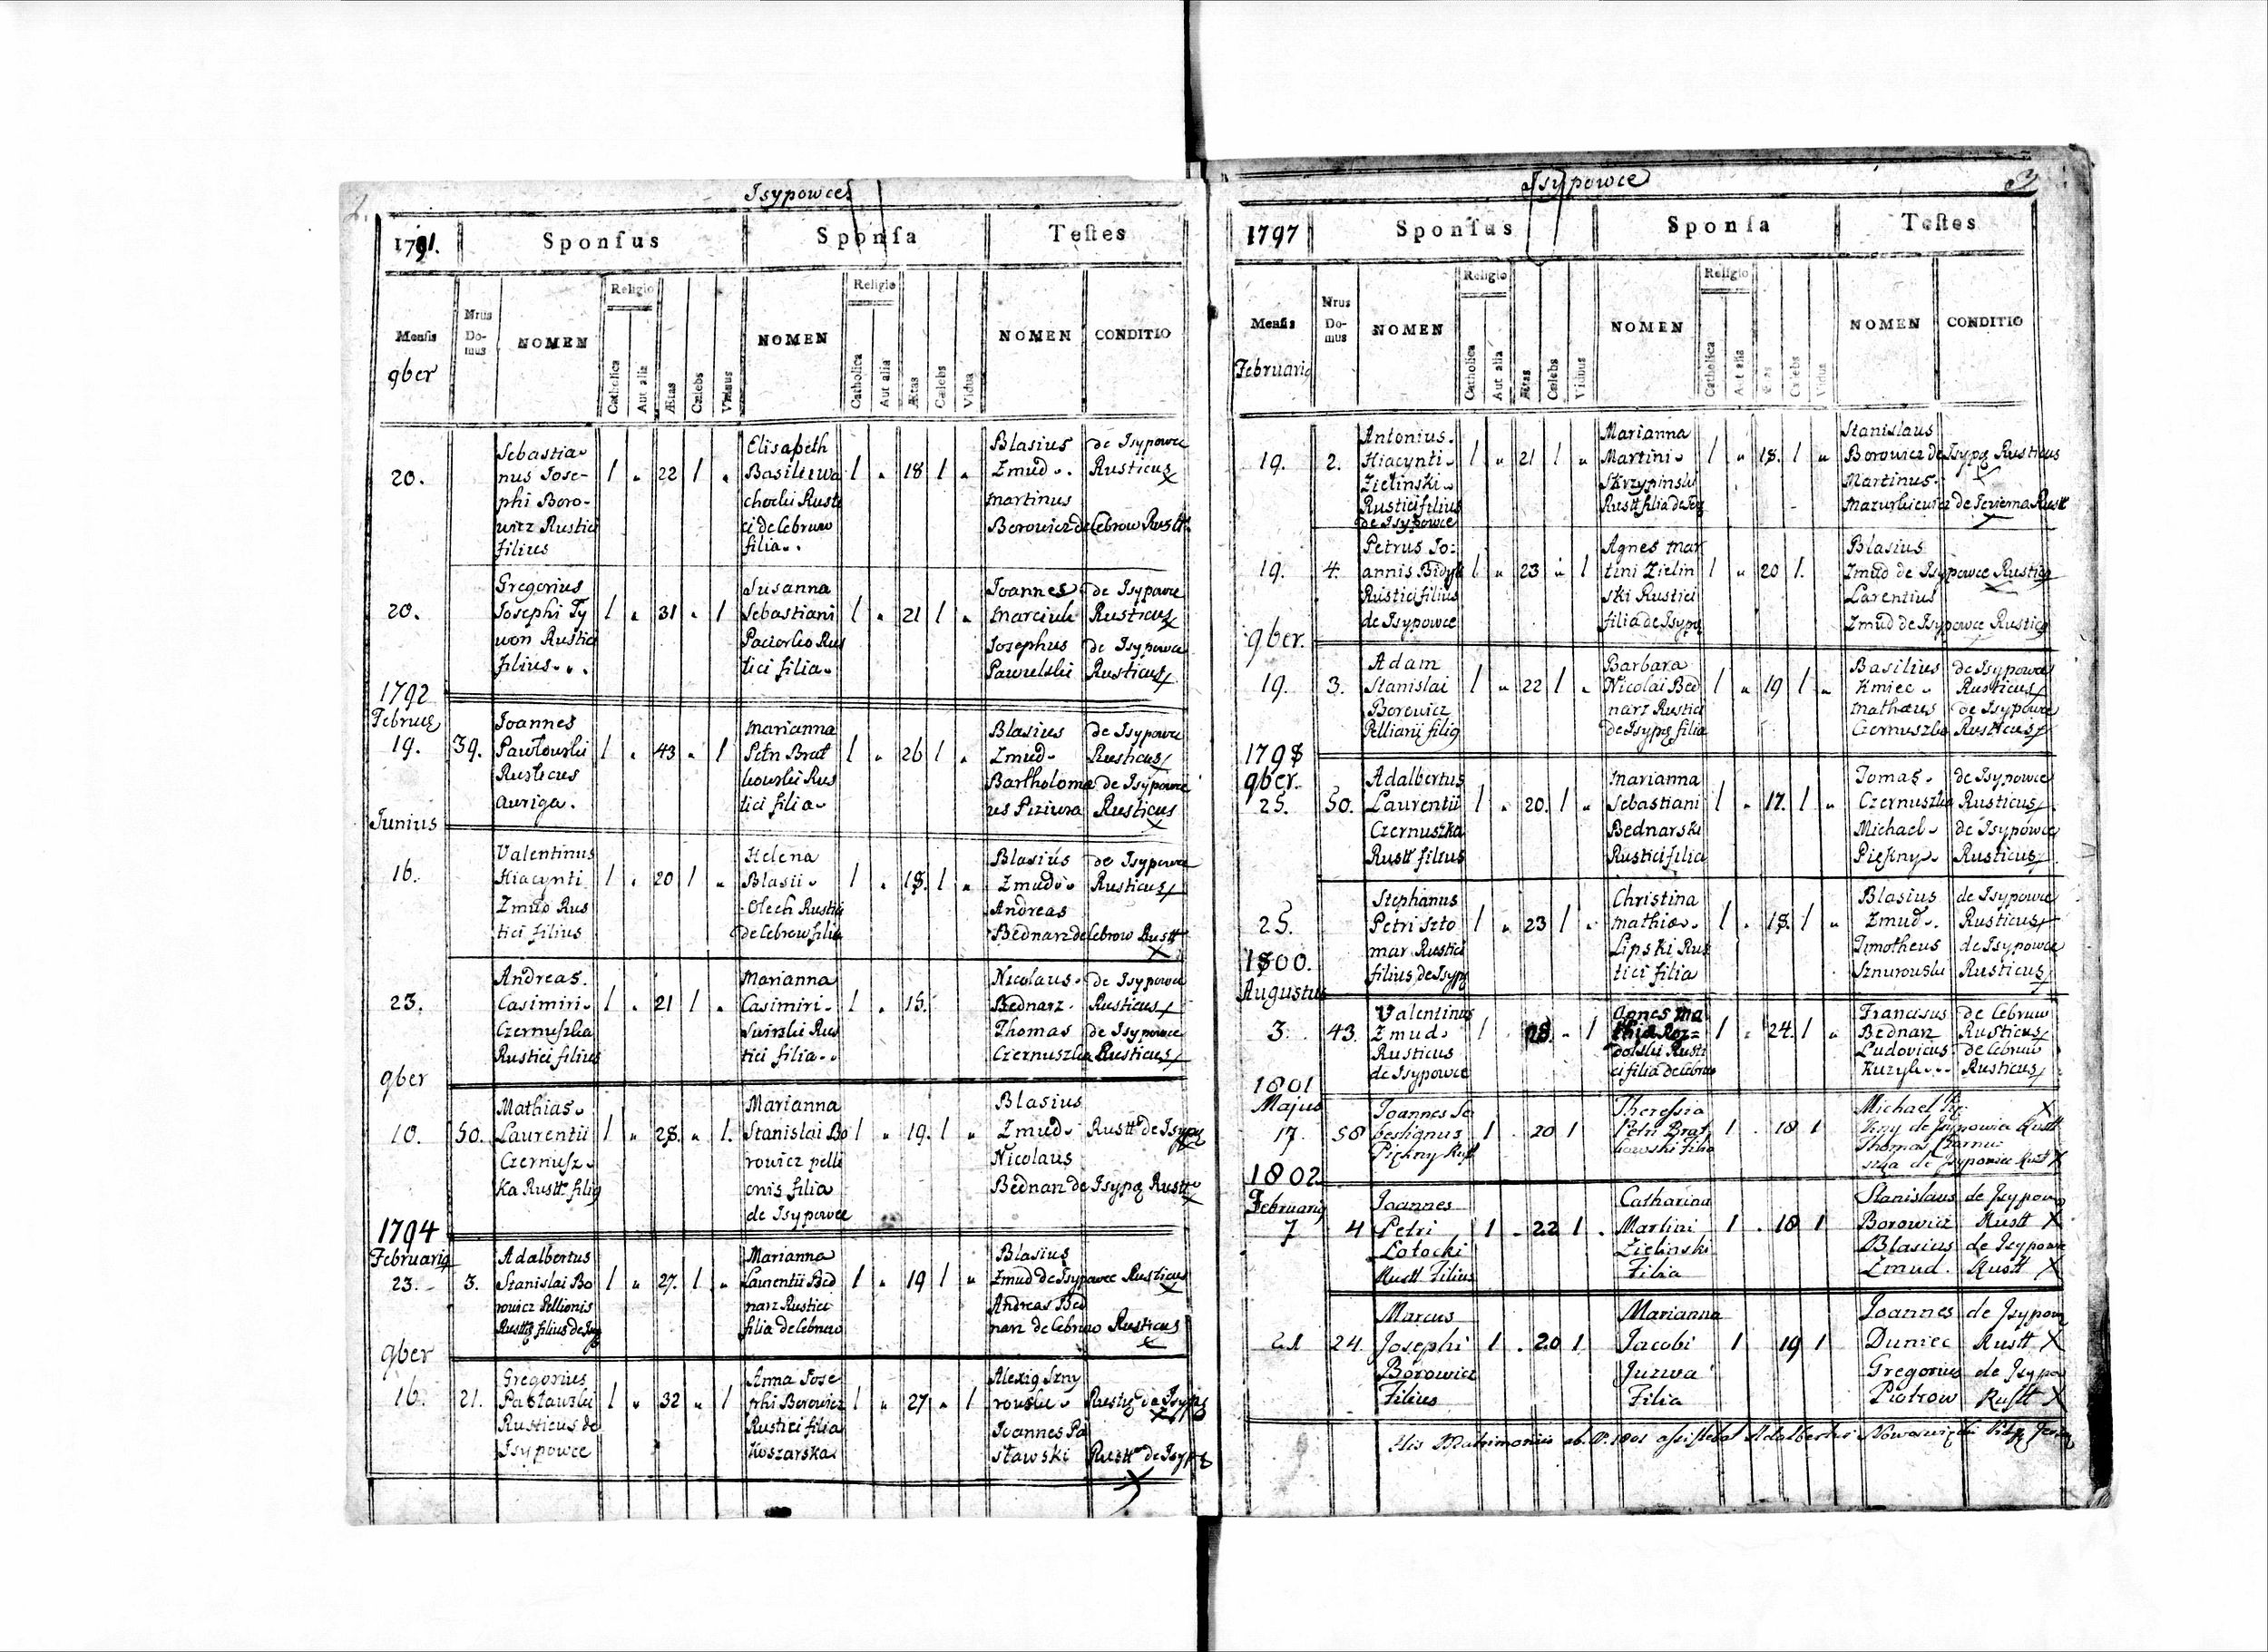 Isypowce
1791.
Sponsus
Sponsa
Testes
Mensis
9ber
Nrus Domus
NOMEN
Religio
Catholica
Aut alia
Ætas
Cælebs
Viduus
NOMEN
Religio
Catholica
Aut alia
Ætas
Cælebs
Vidua
NOMEN
CONDITIO
20.
Sebastia-
nus Jose-
phi Boro-
wicz Rustici
filius
1 " 22 1 "
Elisabeth
Basilii Wa
chocki Rusti
ci de Cebrow
filia
1 " 18 1 "
Blasius de Isypowce
Zmud Rusticus
Martinus
Borowicz de Cebrow Rustt.
20.
Gregorius
Josephi Ty
won Rustici
filius
1 " 31 " 1
Susanna
Sebastiani
Paciorko Rus
tici filia
1 " 21 1 "
Joannes de Isypowce
Marciuk Rusticus
Josephus de Isypowce
Pawelski Rusticus
1792
Februus
19. 39.
Joannes
Pawłowski
Rusticus
auriga.
1 " 43 " 1
Marianna
Petri Brat
kowski Rus
tici filia
1 " 26 1 "
Blasius de Isypowce
Zmud Rusticus
Bartholomæ de Isypowce
us Piziura Rusticus
Junius
16.
Valentinus
Hiacynti
Zmud Rus
tici filius
1 " 20 1 "
Helena
Blasii
Olech Rustici
de Cebrow filia
1 " 18. 1 "
Blasius de Isypowce
Zmud Rusticus
Andreas
Bednarz de Cebrow Rustt
23.
Andreas.
Casimiri
Czernuszka
Rustici filius
1 " 21 1 "
Marianna
Casimiri
Swirski Rus
tici filia
1 " 15.
Nicolaus de Isypowce
Bednarz Rusticus
Thomas de Isypowce
Czernuszka Rusticus
9ber
10. 50.
Mathias
Laurentii
Czernusz
ka Rustt. filiq
1 " 28. " 1.
Marianna
Stanislai Bo
rowicz pelli
onis filia
de Isypowce
1 " 19. 1 "
Blasius
Zmud Rustt de Isypq
Nicolaus
Bednarz de Isypq Rustt
1794
Februariq
23. 3.
Adalbertus
Stanislai Bo
rowicz Pellionis
Rusttq filius de Isyp
1 " 27. 1 "
Marianna
Laurentii Bed
narz Rustici
filia de Cebrow
1 " 19 1 "
Blasius
Zmud de Isypowce Rusticus
Andreas Bed
narz de Cebrow Rusticus
9ber
16. 21.
Gregorius
Pasławski
Rusticus de
Isypowce
1 " 32 " 1
Anna Jose
phi Borowicz
Rustici filia
Koszarska
1 " 27 " 1
Alexiq Szny
rowski Rustq de Isypq
Joannes Pa
sławski Rustt de Isypq
Isypowce
3
1797
Sponsus
Sponsa
Testes
Mensis
Februariq
Nrus Domus
NOMEN
Religio
Catholica
Aut alia
Ætas
Cælebs
Viduus
NOMEN
Religio
Catholica
Aut alia
Ætas
Cælebs
Vidua
NOMEN
CONDITIO
19. 2.
Antonius.
Hiacynti
Zielinski
Rustici filius
de Isypowce
1 " 21 1 "
Marianna
Martini
Skrzypinski
Rustt filia de
1 " 18. 1 "
Stanislaus
Borowicz de Isypq Rusticus
Martinus
Mazurkiewicz de Jezierna Rustt
19. 4.
Petrus Jo:
annis Bidyk
Rustici filius
de Isypowce
1 " 23 " 1
Agnes Mar
tini Zielin
ski Rustici
filia de Isypq
1 " 20 1.
Blasius
Zmud de Isypowce Rusticq
Larentius
Zmud de Isypowce Rusticq
9ber.
19. 3.
Adam
Stanislai
Borowicz
Pelliani filiq
1 " 22 1 "
Barbara
Nicolai Bed
narz Rustici
de Isypq filia
1 " 19 1 "
Basilius de Isypowce
Kmiec Rusticus
Mathæus de Isypowce
Czernuszka Rusticus
1798
9ber.
25. 50.
Adalbertus
Laurentii
Czernuszka
Rustt filius
1 " 20. 1 "
Marianna
Sebastiani
Bednarski
Rustici filia
1 " 17. 1 "
Tomas de Isypowce
Czernuszka Rusticus
Michael de Isypowce
Piękny Rusticus
25.
Stephanus
Petri Szto
mar Rustici
filius de Isypq
1 " 23 1 "
Christina
Mathiæ
Lipski Rus
tici filia
1 " 18. 1 "
Blasius de Isypowce
Zmud. Rusticus
Timotheus de Isypowce
Sznurowski Rusticus
1800.
Augustus
3. 43.
Valentinus
Zmud
Rusticus
de Isypowce
1 " 28. " 1
Agnes Ma
thiæ Roz=
dolski Rusti
ci filia de Cebrow
1 " 24. 1 "
Franciscus de Cebrow
Bednarz Rusticus
Ludovicus de Cebrow
Kuzyk Rusticus
1801
Majus
17. 58
Joannes Se
bestianus
Piękny Rust
1 . 20 1
Theressia
Petri Brat
kowski filia
1 . 18 1
Michael Pię
kny de Isypowce Rustt
Thomas Czernu
szka de Isypowce Rustt
1802
Februariq
7 4
Joannes
Petri
Łotocki
Rustt Filius
1 . 22 1 .
Catharina
Martini
Zielinski
Filia
1 . 18 1
Stanislaus de Isypow
Borowicz Rustt
Blasius de Isypowce
Zmud. Rustt
21 24.
Marcus
Josephi
Borowicz
Filius
1 . 20 1
Marianna
Jacobi
Jurwa
Filia
1 19 1
Joannes de Isypow
Duniec Rustt
Gregorius de Isypo
Piotrow Rustt
His Matrimoniis ab. A. 1801 assistebat Adalbertus